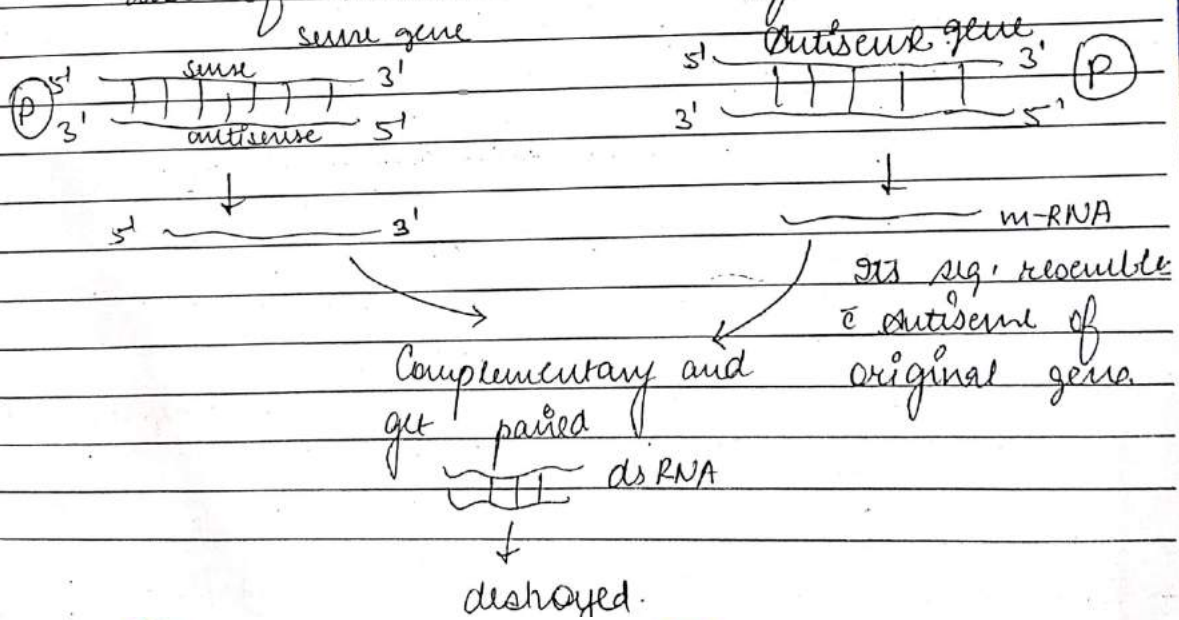 sense gene
Antisense gene
5' sense 3'
5' 3' P
P 3' antisense 5'
3' 5'
5' 3'
m-RNA
Its seq. resemble
c̄ antisense of
original gene.
Complementary and
get paired
ds RNA
destroyed.